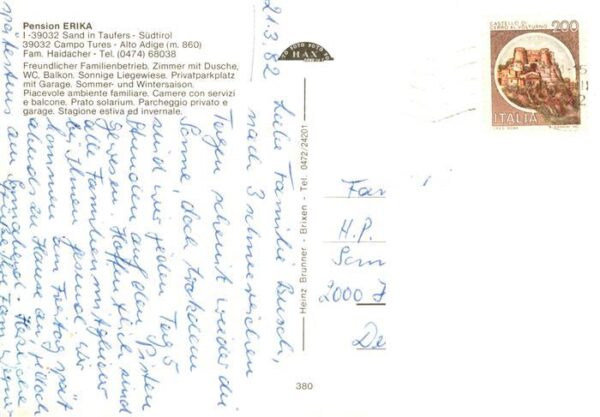 Pension ERIKA
I-39032 Sand in Taufers - Südtirol
39032 Campo Tures - Alto Adige (m. 860)
Fam. Haidacher - Tel. (0474) 68038
Freundlicher Familienbetrieb, Zimmer mit Dusche,
WC, Balkon. Sonnige Liegewiese. Privatparkplatz
mit Garage. Sommer- und Wintersaison.
Piacevole ambiente familiare. Camere con servizi
e balcone. Prato solarium. Parcheggio privato e
garage. Stagione estiva ed invernale.
21.3.82
Liebe Familie Busch,
nach 3 schneereichen
Tagen scheint wieder die
Sonne, doch trotzdem
sind wir jeden Tag 5
Stunden auf den Pisten
gewesen. Hoffentlich sind
alle Familienmitglieder
bei Ihnen gesund. Wir
kommen am Freitag spät
abends zu Hause an,
spätestens am Sonnabend. Herzliche
Grüße Ihre Fam.
HAX
Heinz Brunner - Brixen - Tel. 0472/24201
380
CASTELLO DI
CERRO AL VOLTURNO
200
ITALIA
Fam
H.P.
2000
De